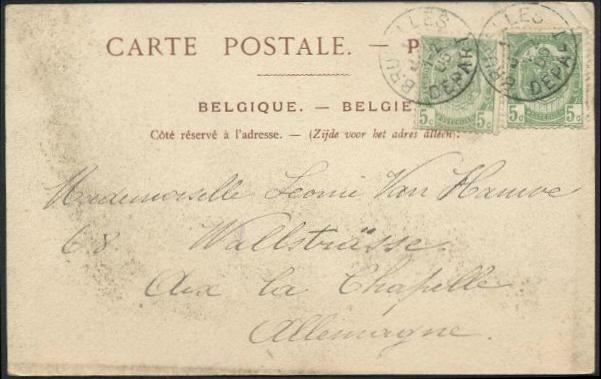 CARTE POSTALE. — P
BELGIQUE. — BELGIË
Côté réservé à l'adresse. — (Zijde voor het adres alleen).
5c 5c 5c 5c
BRUXELLES DEPART
BRUXELLES DEPART
Mademoiselle Leonie Van
68 Wallsträsse
Aix la Chapelle
Allemagne.